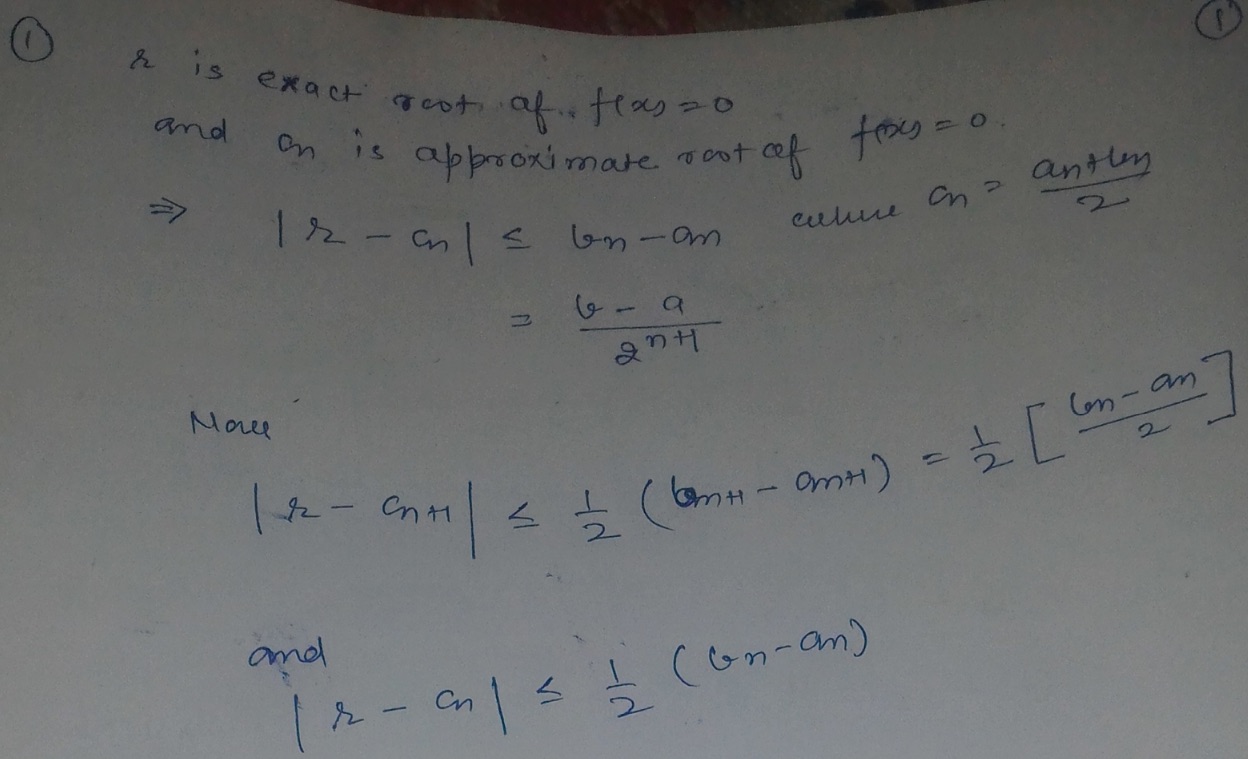 ① ①
r is exact root of f(x) = 0
and cn is approximate root of f(x) = 0.
⇒ |r - cn| ≤ bn - an where cn = (an+bn)/2
= (b - a)/2^(n+1)
Now
|r - cn+1| ≤ 1/2 (bn+1 - an+1) = 1/2 [(bn - an)/2]
and
|r - cn| ≤ 1/2 (bn - an)